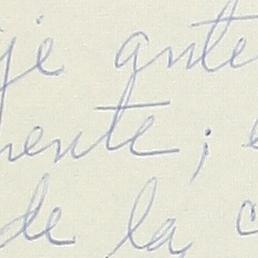 je ante
mente;
de la c